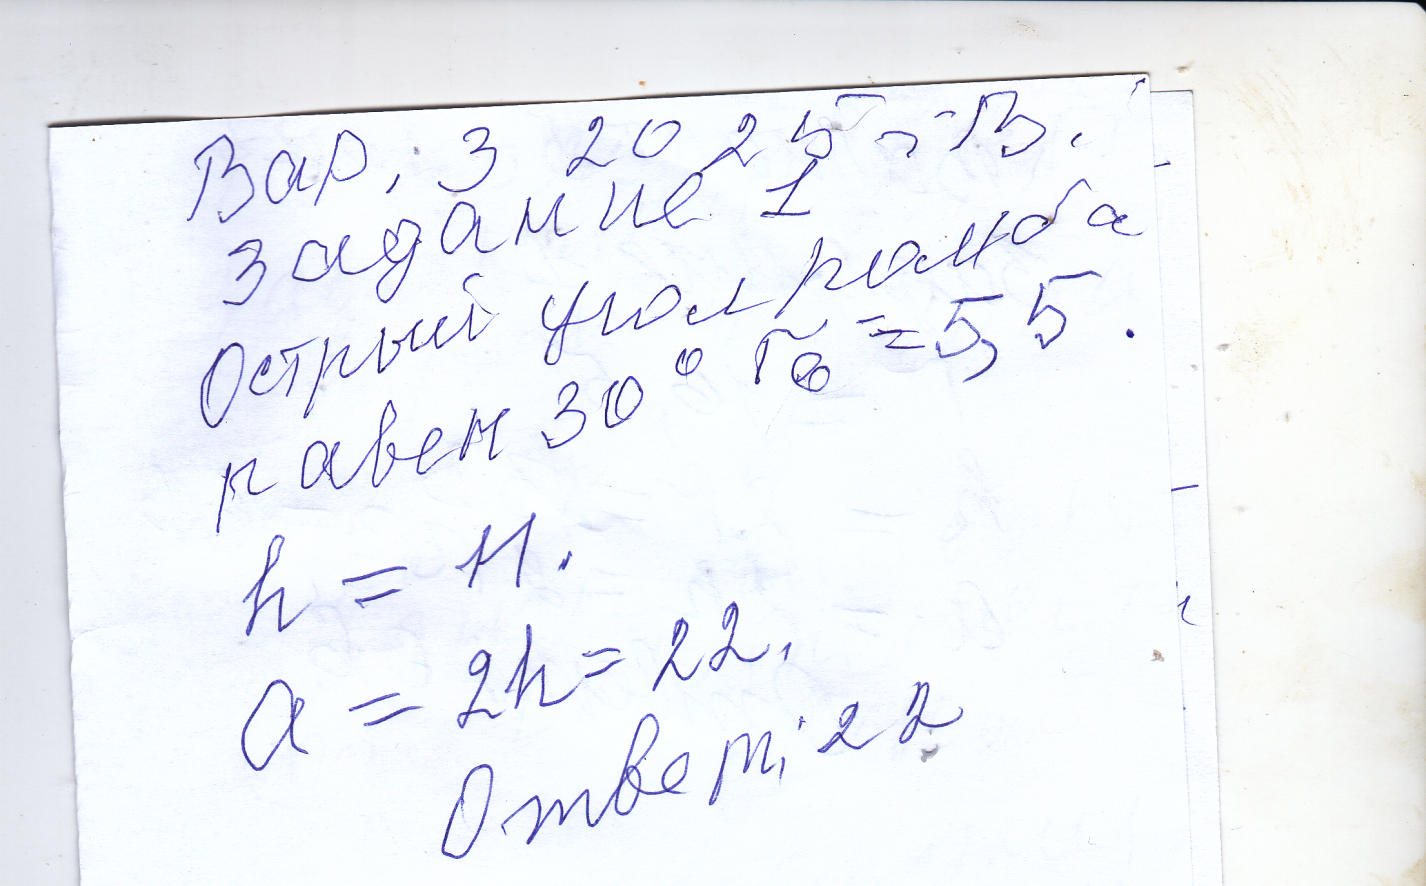 Вар. 3 2025г. В.
Задание 1
Острый угол ромба
равен 30° r₀ = 5,5.
h = 11.
a = 2h = 22.
Ответ: 22